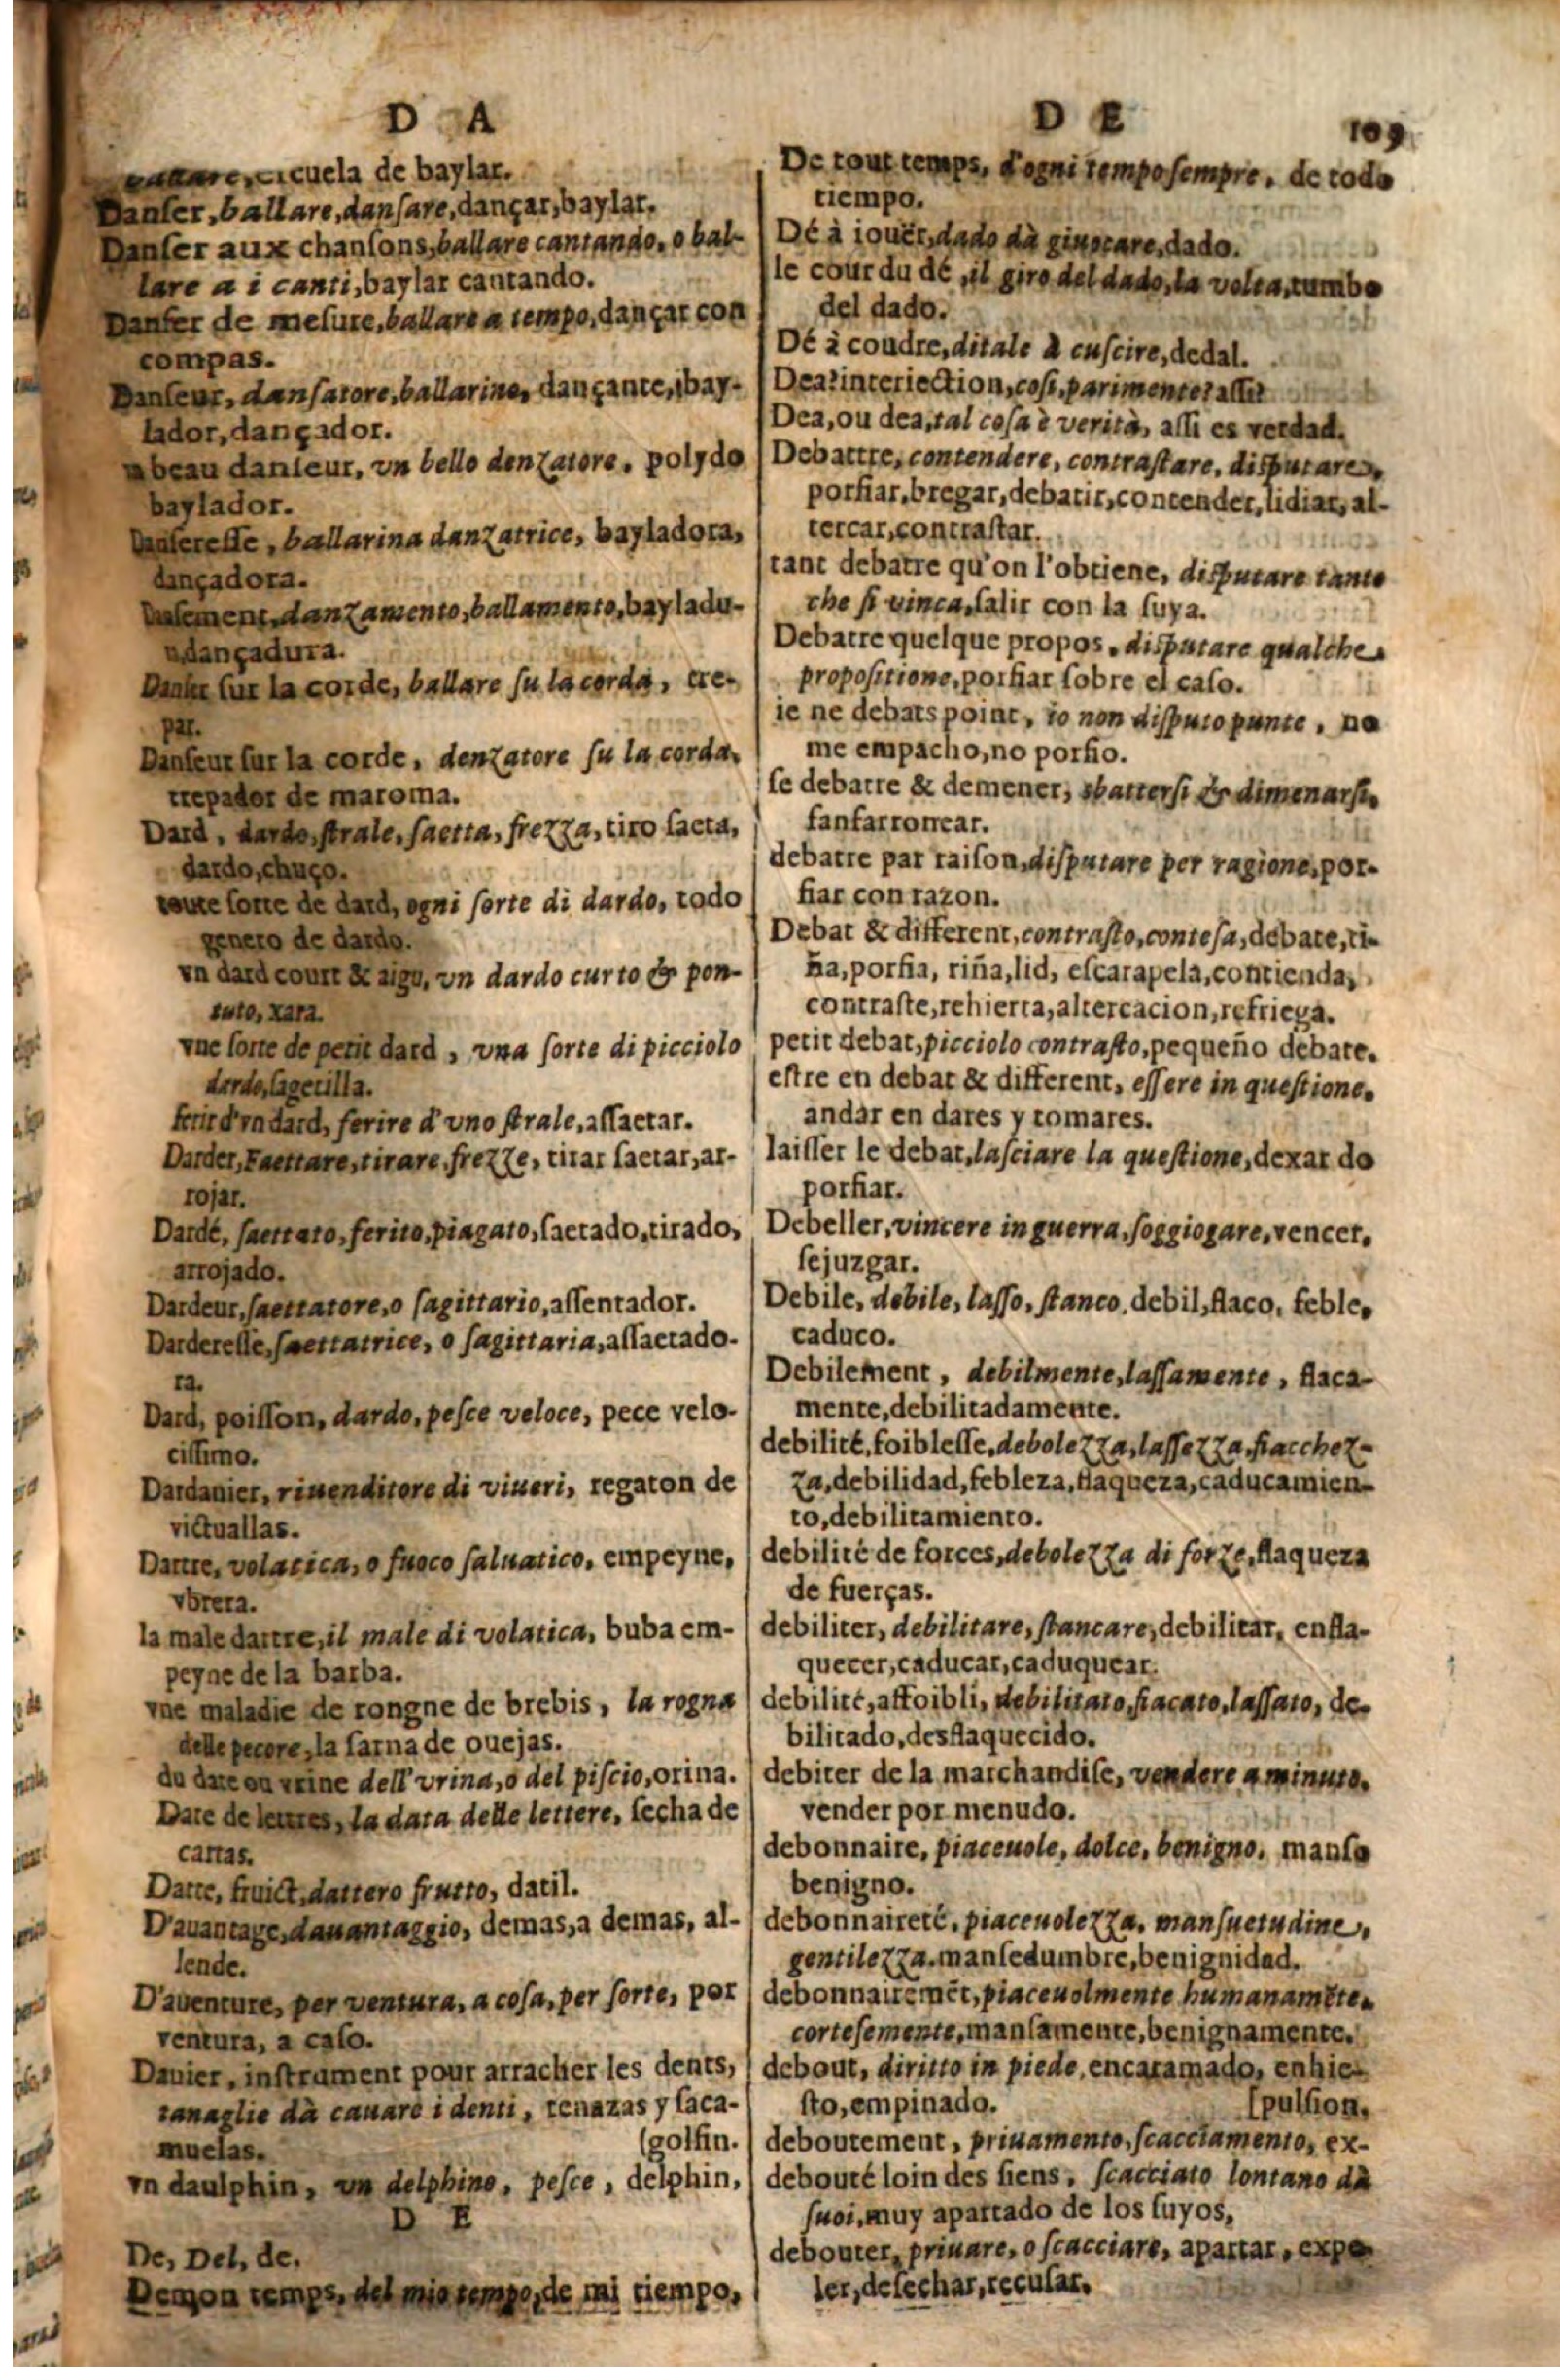 D A
ballare, escuela de baylar.
Danſer, ballare, danſare, dançar, baylar.
Danſer aux chanſons, ballare cantando, o bal-
lare a i canti, baylar cantando.
Danſer de meſure, ballare a tempo, dançar con
compas.
Danſeur, danſatore, ballarino, dançante, bay-
lador, dançador.
beau danſeur, vn bello denzatore, polydo
baylador.
Danſereſſe, ballarina danzatrice, bayladora,
dançadora.
danzamento, ballamento, bayladu-
dançadura.
Danſer ſur la corde, ballare ſu la corda, tre-
par.
Danſeur ſur la corde, denzatore ſu la corda,
trepador de maroma.
Dard, dardo, ſtrale, ſaetta, frezza, tiro ſaeta,
dardo, chuço.
toute ſorte de dard, ogni ſorte di dardo, todo
genero de dardo.
vn dard court & aigu, vn dardo curto & pon-
tuto, xara.
vne ſorte de petit dard, vna ſorte di picciolo
dardo, ſagetilla.
ferir d'vn dard, ferire d'vno ſtrale, aſſaetar.
Darder, ſaettare, tirare frezze, tirar ſaetar, ar-
rojar.
Dardé, ſaettato, ferito, piagato, ſaetado, tirado,
arrojado.
Dardeur, ſaettatore, o ſagittario, aſſentador.
Dardereſſe, ſaettatrice, o ſagittaria, aſſaetado-
ra.
Dard, poiſſon, dardo, peſce veloce, pece velo-
ciſſimo.
Dardanier, riuenditore di viueri, regaton de
victuallas.
Dartre, volatica, o fuoco ſaluatico, empeyne,
vbrera.
la male dartre, il male di volatica, buba em-
peyne de la barba.
vne maladie de rongne de brebis, la rogna
delle pecore, la ſarna de ouejas.
du date ou vrine dell'vrina, o del piſcio, orina.
Date de lettres, la data delle lettere, fecha de
cartas.
Datte, fruict, dattero frutto, datil.
D'auantage, dauantaggio, demas, a demas, al-
lende.
D'auenture, per ventura, a coſa, per ſorte, por
ventura, a caſo.
Dauier, inſtrument pour arracher les dents,
tanaglie dà cauare i denti, tenazas y ſaca-
muelas. (golfin.
vn daulphin, vn delphino, peſce, delphin,
D E
De, Del, de.
De mon temps, del mio tempo, de mi tiempo,
D E 109
De tout temps, d'ogni tempo ſempre, de todo
tiempo.
Dé à iouër, dado dà giuocare, dado.
le cour du dé, il giro del dado, la volta, tumbo
del dado.
Dé à coudre, ditale à cuſcire, dedal.
Dea? interiection, coſi, parimente? aſſi?
Dea, ou dea, tal coſa è verità, aſſi es verdad.
Debattre, contendere, contraſtare, diſputare,
porfiar, bregar, debatir, contender, lidiar, al-
tercar, contraſtar.
tant debatre qu'on l'obtiene, diſputare tanto
che ſi vinca, ſalir con la ſuya.
Debatre quelque propos, diſputare qualche
propoſitione, porfiar ſobre el caſo.
ie ne debats point, io non diſputo punto, no
me empacho, no porfio.
ſe debatre & demener, sbatterſi & dimenarſi,
fanfarronear.
debatre par raiſon, diſputare per ragione, por-
fiar con razon.
Debat & different, contraſto, conteſa, debate, ri-
ña, porfia, riña, lid, eſcarapela, contienda,
contraſte, rehierta, altercacion, refriega.
petit debat, picciolo contraſto, pequeño debate.
eſtre en debat & different, eſſere in queſtione,
andar en dares y tomares.
laiſſer le debat, laſciare la queſtione, dexar do
porfiar.
Debeller, vincere in guerra, ſoggiogare, vencer,
ſejuzgar.
Debile, debile, laſſo, ſtanco, debil, flaco, feble,
caduco.
Debilement, debilmente, laſſamente, flaca-
mente, debilitadamente.
debilité, foibleſſe, debolezza, laſſezza, fiacchez-
za, debilidad, febleza, flaqueza, caducamien-
to, debilitamiento.
debilité de forces, debolezza di forze, flaqueza
de fuerças.
debiliter, debilitare, ſtancare, debilitar, enfla-
quecer, caducar, caduquear.
debilité, affoibli, debilitato, fiacato, laſſato, de-
bilitado, desflaquecido.
debiter de la marchandiſe, vendere a minuto,
vender por menudo.
debonnaire, piaceuole, dolce, benigno, manſo
benigno.
debonnaireté, piaceuolezza, manſuetudine,
gentilezza, manſedumbre, benignidad.
debonnairemẽt, piaceuolmente humanamẽte,
corteſemente, manſamente, benignamente.
debout, diritto in piede, encaramado, enhie-
ſto, empinado. [pulſion.
deboutement, priuamento, ſcacciamento, ex-
debouté loin des ſiens, ſcacciato lontano dà
ſuoi, muy apartado de los ſuyos,
debouter, priuare, o ſcacciare, apartar, expe-
ler, deſechar, recuſar.